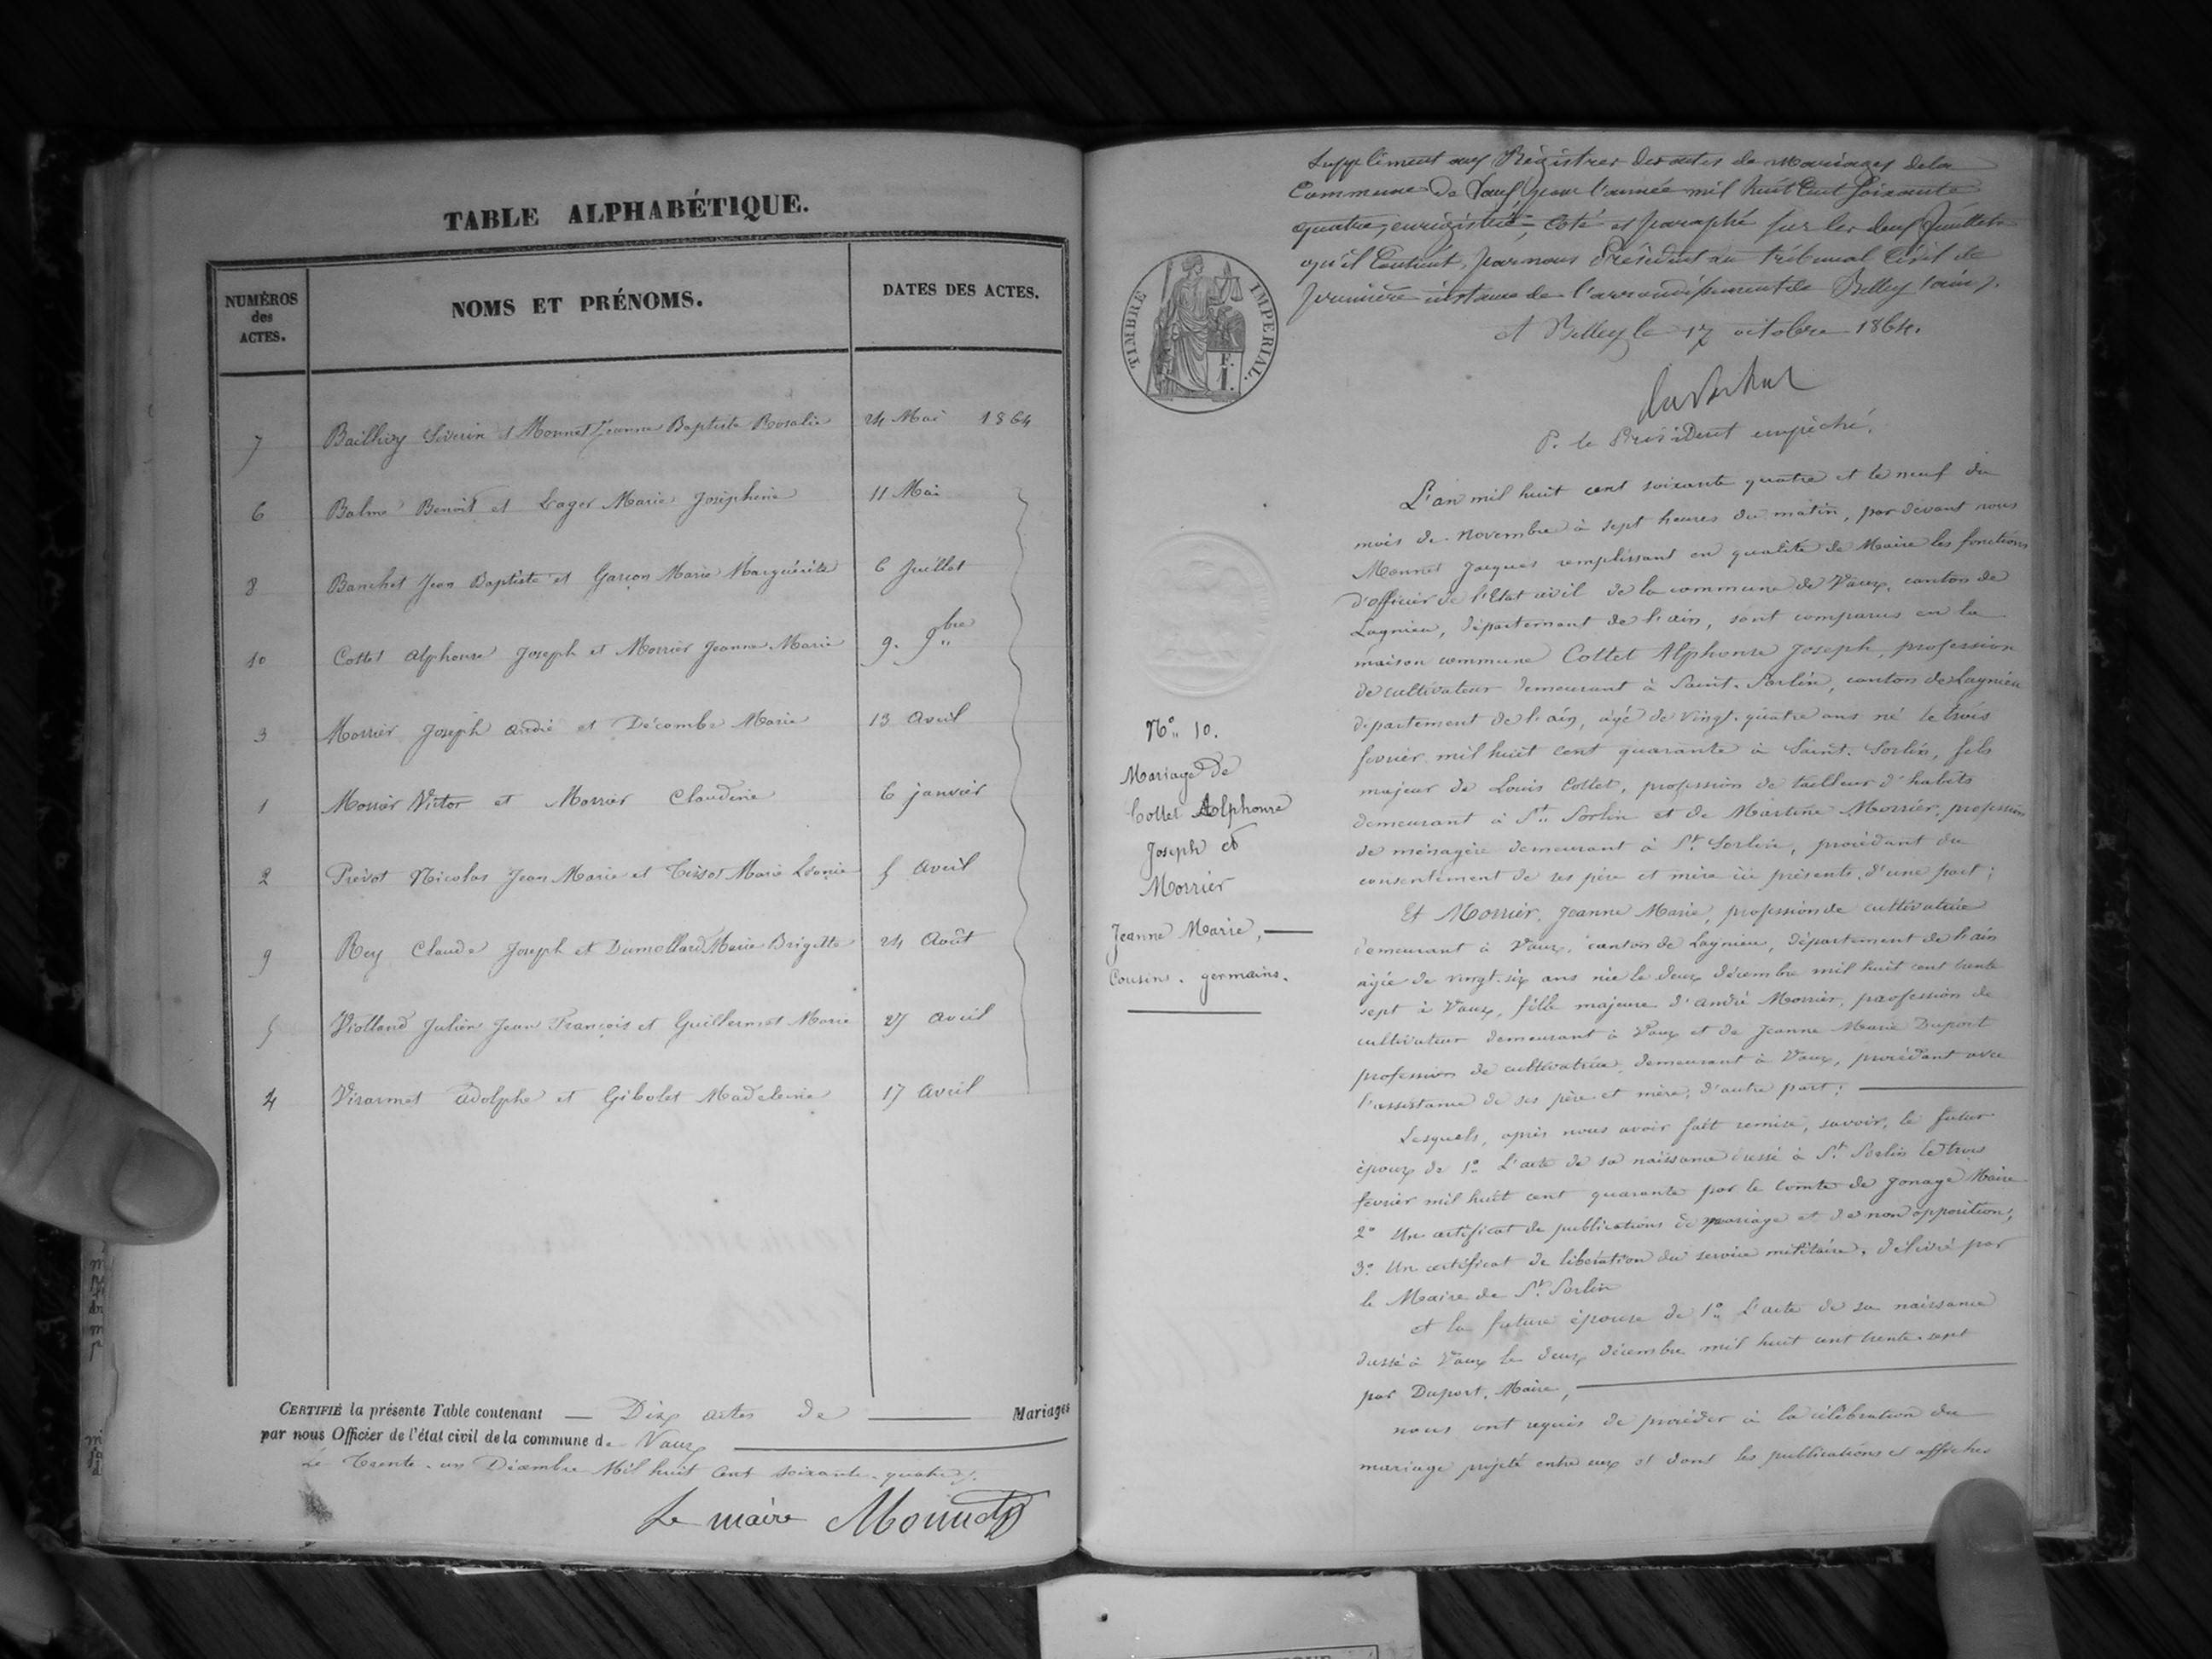 TABLE ALPHABÉTIQUE.
NUMÉROS des ACTES. NOMS ET PRÉNOMS. DATES DES ACTES.
7 Bailhiy Séverin et Monnet Jeanne Baptiste Rosalie 24 Mai 1864
6 Balme Benoit et Lager Marie Joséphine 11 Mai
8 Banchet Jean Baptiste et Garçon Marie Marguérite 6 Juillet
10 Cottet Alphonse Joseph et Morrier Jeanne Marie 9. 9bre
3 Morrier Joseph André et Décombe Marie 13 Avril
1 Morrier Victor et Morrier Claudine 6 janvier
2 Prévot Nicolas Jean Marie et Tissot Marie Léonie 5 Avril
9 Rey Claude Joseph et Dumollard Marie Brigitte 24 Août
5 Violland Julien Jean François et Guillermet Marie 27 Avril
4 Virarmet Adolphe et Gibolet Madeleine 17 Avril
CERTIFIÉ la présente Table contenant — Dix actes de — Mariages
par nous Officier de l'état civil de la commune de Vaux
Le Trente-un Décembre Mil huit Cent soixante-quatre.
Le maire Monnet
Supplément aux Régistres des actes de Mariages de la
Commune de Vaux, pour l'année mil huit Cent soixante
quatre, enrégistré, coté et paraphé sur les deux feuillets
qu'il Contient, par nous Président du tribunal Civil de
première instance de l'arrondissement de Belley (ain).
A Belley le 17 octobre 1864.
P. le Président empêché.
TIMBRE IMPÉRIAL.
F. 1.
No. 10.
Mariage de
Cottet Alphonse
Joseph et
Morrier
Jeanne Marie, —
Cousins-germains.
L'an mil huit cent soixante quatre et le neuf du
mois de novembre à sept heures du matin, par devant nous
Monnet Jacques remplissant en qualité de Maire les fonctions
d'officier de l'Etat civil de la commune de Vaux, canton de
Lagnieu, département de l'ain, sont comparus en la
maison commune Cottet Alphonse Joseph, profession
de cultivateur demeurant à Saint-Sorlin, canton de Lagnieu
département de l'ain, âgé de vingt-quatre ans né le trois
février mil huit cent quarante à Saint-Sorlin, fils
majeur de Louis Cottet, profession de tailleur d'habits
demeurant à St. Sorlin et de Martine Morrier, profession
de ménagère demeurant à St. Sorlin, procédant du
consentement de ses père et mère ici présents, d'une part;
Et Morrier, Jeanne Marie, profession de cultivatrice
demeurant à Vaux, canton de Lagnieu, département de l'ain
agée de vingt-six ans née le deux décembre mil huit cent trente
sept à Vaux, fille majeure d'André Morrier, profession de
cultivateur demeurant à Vaux et de Jeanne Marie Duport
profession de cultivatrice, demeurant à Vaux, procédant avec
l'assistance de ses père et mère, d'autre part;
Lesquels, après nous avoir fait remise, savoir, le futur
époux de 1o L'acte de sa naissance dressé à St. Sorlin le trois
février mil huit cent quarante par le comte de Jonage Maire
2o Un certificat de publications de mariage et de non opposition,
3o Un certificat de libération du service militaire, délivré par
le Maire de St. Sorlin
et la future épouse de 1o L'acte de sa naissance
dressé à Vaux le deux décembre mil huit cent trente-sept
par Duport, Maire,
nous ont requis de procéder à la célébration du
mariage projeté entre eux et dont les publications et affiches